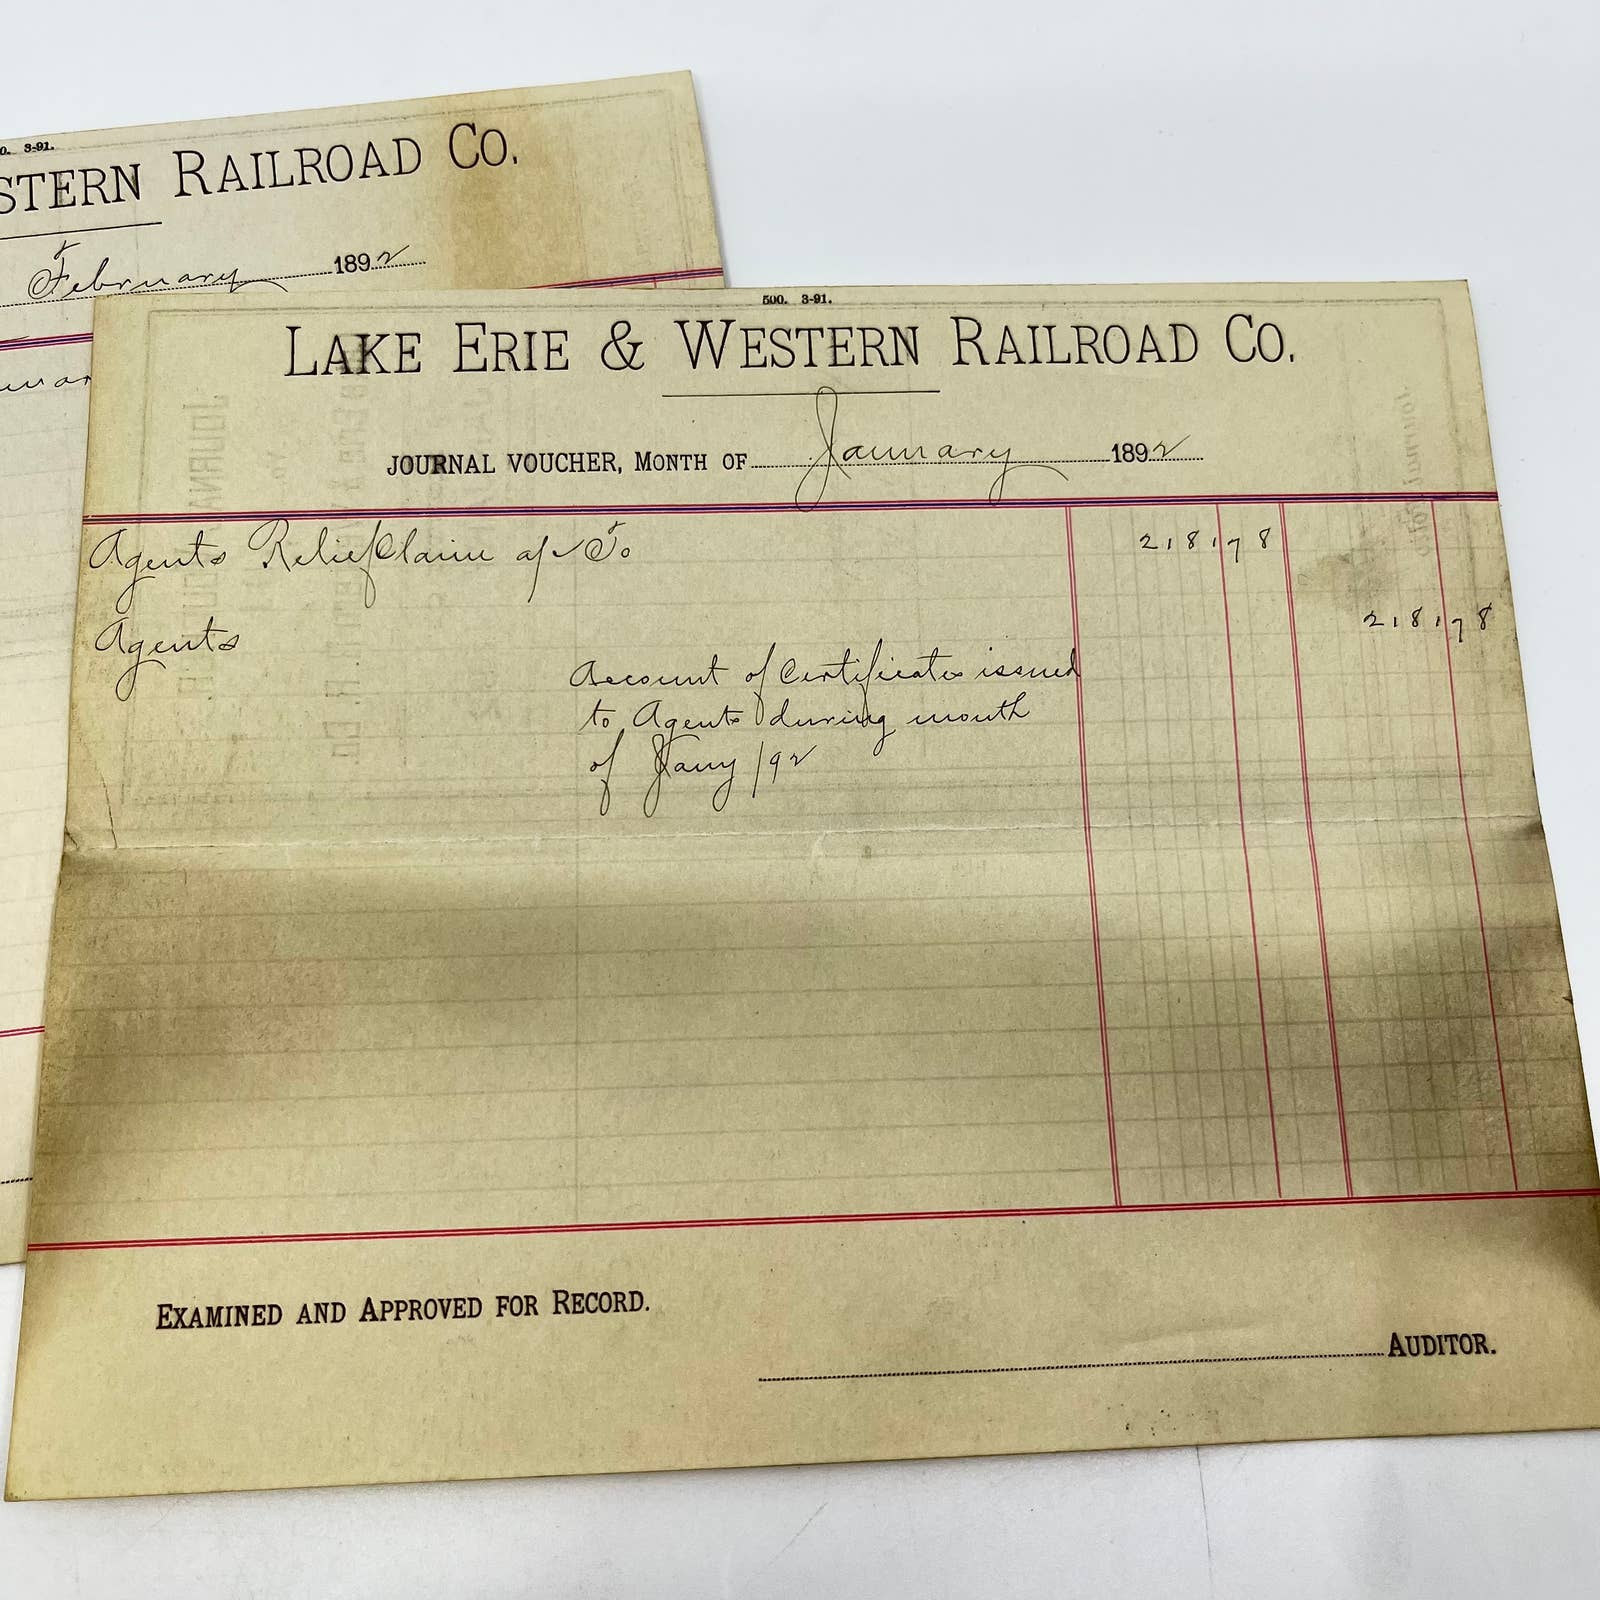 0. 3-91.
STERN RAILROAD CO.
February 1892
500. 3-91.
LAKE ERIE & WESTERN RAILROAD CO.
JOURNAL VOUCHER, MONTH OF January 1892
Agents Relief Claim a/c To 218178
Agents 218178
Account of Certificates issued
to Agents during month
of Jany /92
EXAMINED AND APPROVED FOR RECORD.
AUDITOR.